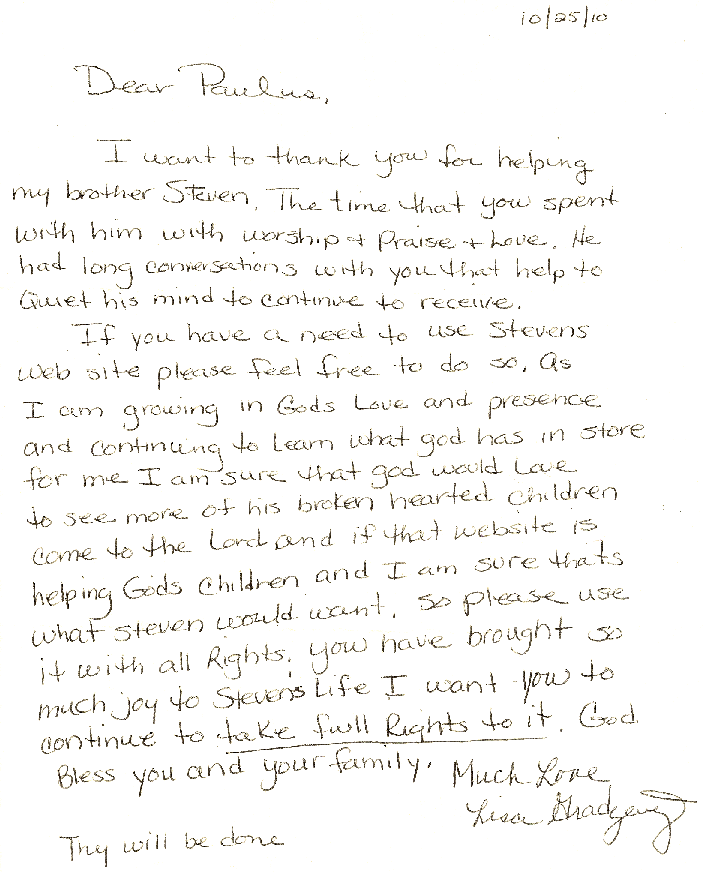 10/25/10
Dear Paulus,
I want to thank you for helping
my brother Steven. The time that you spent
with him with worship + Praise + Love. He
had long conversations with you that help to
Quiet his mind to continue to receive.
If you have a need to use Stevens
web site please feel free to do so. As
I am growing in Gods Love and presence
and continuing to learn what god has in store
for me I am sure that god would Love
to see more of his broken hearted children
come to the Lord and if that website is
helping Gods Children and I am sure thats
what Steven would want. So please use
it with all Rights. you have brought so
much joy to Steven's Life I want you to
continue to take full Rights to it. God
Bless you and your family. Much Love
Lisa
Thy will be done